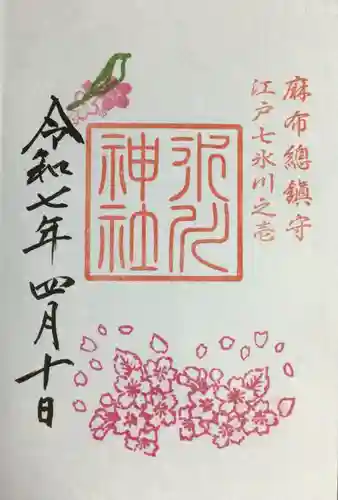 麻布總鎮守
江戸七氷川之壱
氷川
神社
令和七年四月十日